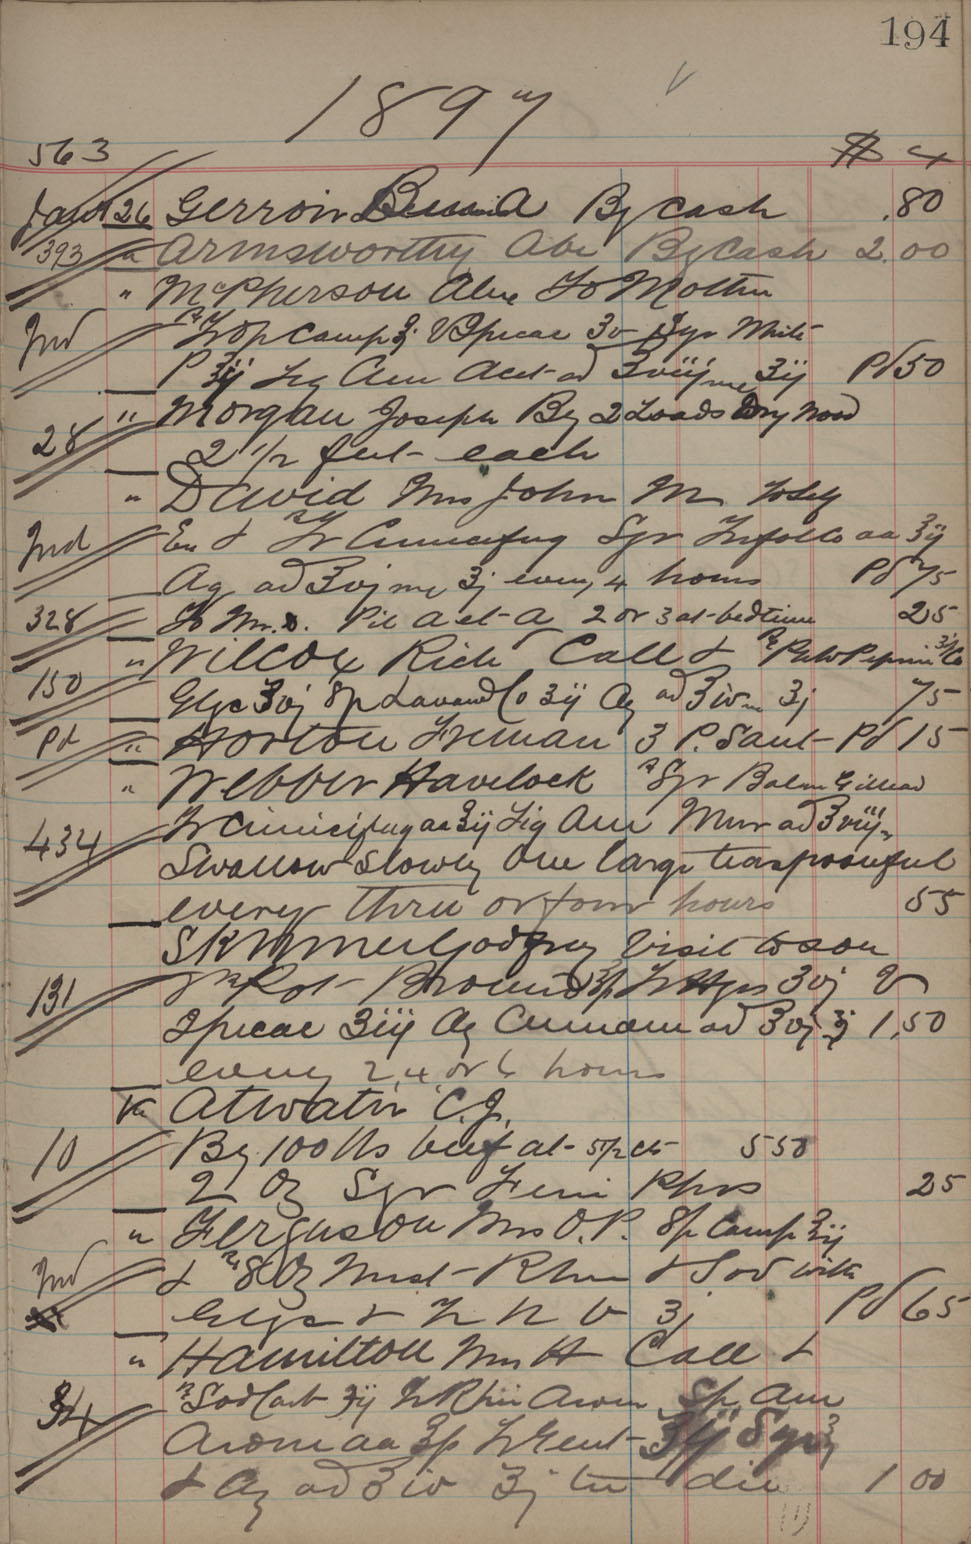 194
1897
563
Jan 26 Gerroir By Cash .80
393 " Armsworthy Abe By Cash 2.00
" McPherson Alex To Mother
Ind Tr Op Camp ʒj V Ipecac ʒv Syr White
P ʒij Liq Am Acet ad ʒviij ʒij Pd 50
28 " Morgan Joseph By 2 Loads Dry Wood
2 1/2 feet each
" David Mrs John M Self
Ind & Tr Cimicifug Syr Trifolio aa ʒij
Aq ad ʒvj ʒj every 4 hours Pd 75
328 To Mr. D. Pil A et A 2 or 3 at bedtime 25
150 " Wilcox Rich Call & Pulv Pepsin
Glyc ʒvj Sp Lavand Co ʒij Aq ad ʒiv ʒj 75
Pd " Horton Freman 3 P. Sant Pd 15
" Webber Havelock Syr Balm Gilead
434 Tr Cimicifug aa ʒij Liq Am Mur ad ʒviij
Swallow slowly One large teaspoonful
every three or four hours 55
Skimmer Godfrey Visit to son
131 Rot Brown Tr Hyos ʒvj V
Ipecac ʒiij Aq Cinnam ad ʒvj ʒj 1.50
every 2, 4, or 6 hours
Atwater C.J.
10 By 100 lbs beef at 5 1/2 cts 5 50
2 Oz Syr Ferri Phos 25
" Ferguson Mrs O.P. Sp Camp ʒij
Ind & 8 Oz Mist Rhei & Sod with
Glyc & Tr N V ʒj Pd 65
" Hamilton Mrs H Call &
34 Sod Carb ʒij Tr Rhei Arom Sp Am
Arom aa Tr Gent ʒij Syr
& Aq ad ʒiv ʒj ter die 1 00